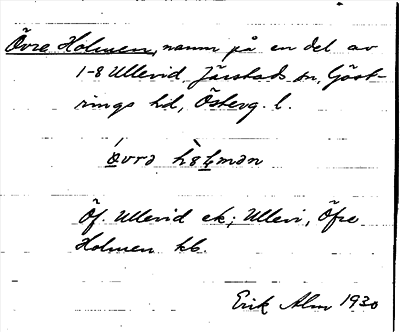 Övre Holmen, namn på en del av
1-8 Ullevid Järstads sn, Göst-
rings hd, Östergl.
Öf. Ullevid ek; Ullevi, Öfre
Holmen kb.
Erik Alm 1930